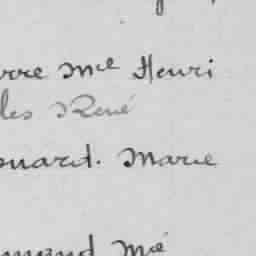 rre Mel Henri
les René
ouard. Marie
mond Mé